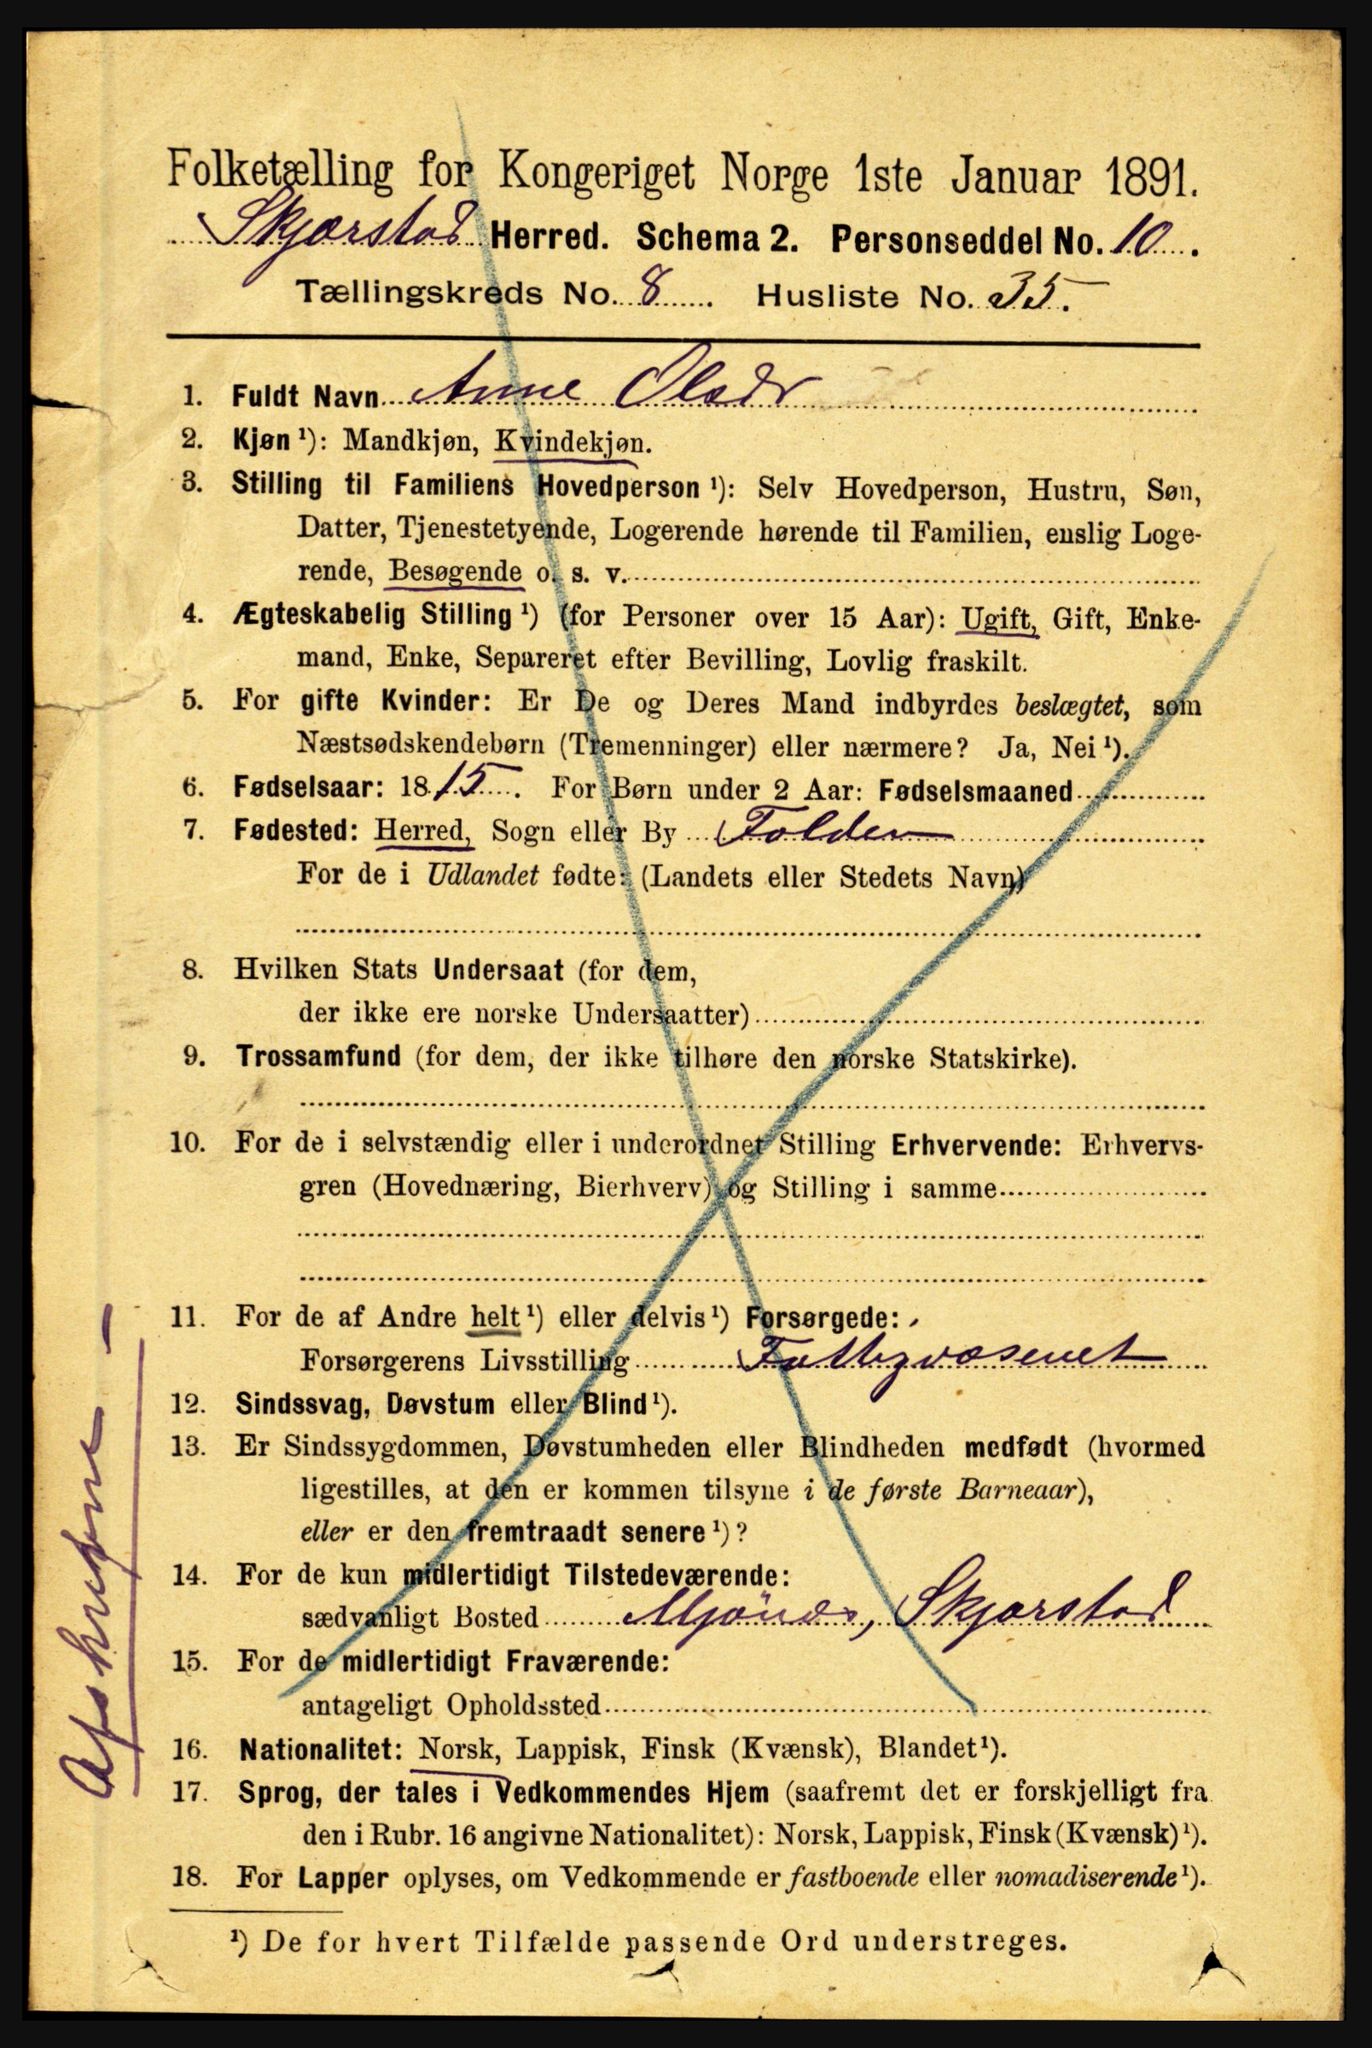 Folketælling for Kongeriget Norge 1ste Januar 1891.
Skjærstad Herred. Schema 2. Personseddel No. 10.
Tællingskreds No. 8. Husliste No. 35.
1. Fuldt Navn Anne Olsdr
2. Kjøn ¹): Mandkjøn, Kvindekjøn.
3. Stilling til Familiens Hovedperson ¹): Selv Hovedperson, Hustru, Søn,
Datter, Tjenestetyende, Logerende hørende til Familien, enslig Loge-
rende, Besøgende o. s. v.
4. Ægteskabelig Stilling ¹) (for Personer over 15 Aar): Ugift, Gift, Enke-
mand, Enke, Separeret efter Bevilling, Lovlig fraskilt.
5. For gifte Kvinder: Er De og Deres Mand indbyrdes beslægtet, som
Næstsødskendebørn (Tremenninger) eller nærmere? Ja, Nei ¹).
6. Fødselsaar: 1815. For Børn under 2 Aar: Fødselsmaaned
7. Fødested: Herred, Sogn eller By Folden
For de i Udlandet fødte: (Landets eller Stedets Navn)
8. Hvilken Stats Undersaat (for dem,
der ikke ere norske Undersaatter)
9. Trossamfund (for dem, der ikke tilhøre den norske Statskirke).
10. For de i selvstændig eller i underordnet Stilling Erhvervende: Erhvervs-
gren (Hovednæring, Bierhverv) og Stilling i samme
11. For de af Andre helt ¹) eller delvis ¹) Forsørgede:
Forsørgerens Livsstilling Fattigvæsenet
12. Sindssvag, Døvstum eller Blind ¹).
13. Er Sindssygdommen, Døvstumheden eller Blindheden medfødt (hvormed
ligestilles, at den er kommen tilsyne i de første Barneaar),
eller er den fremtraadt senere ¹)?
14. For de kun midlertidigt Tilstedeværende:
sædvanligt Bosted Mjønes, Skjærstad
15. For de midlertidigt Fraværende:
antageligt Opholdssted
16. Nationalitet: Norsk, Lappisk, Finsk (Kvænsk), Blandet ¹).
17. Sprog, der tales i Vedkommendes Hjem (saafremt det er forskjelligt fra
den i Rubr. 16 angivne Nationalitet): Norsk, Lappisk, Finsk (Kvænsk) ¹).
18. For Lapper oplyses, om Vedkommende er fastboende eller nomadiserende ¹).
¹) De for hvert Tilfælde passende Ord understreges.